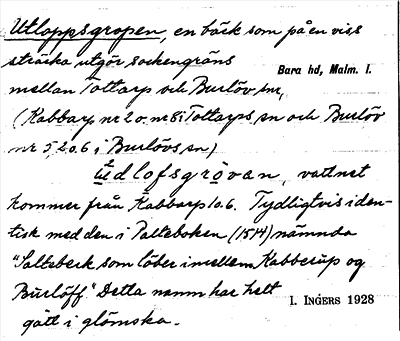 Utloppsgropen, en bäck som på en viss
sträcka utgör sockengräns
Bara hd, Malm. l.
mellan Tottarp och Burlöv snr,
(Kabbarp nr 2 o. nr 8 i Tottarps sn och Burlöv
nr 5, 2 o. 6 i Burlövs sn)
dlofsgrövan, vattnet
kommer från Kabbarp 10.6. Tydligtvis iden-
tisk med den i Palteboken (1514) nämnda
"Saltebeck som löber imellem Kabberup og
Burlöff." Detta namn har helt
I. INGERS 1928
gått i glömska.